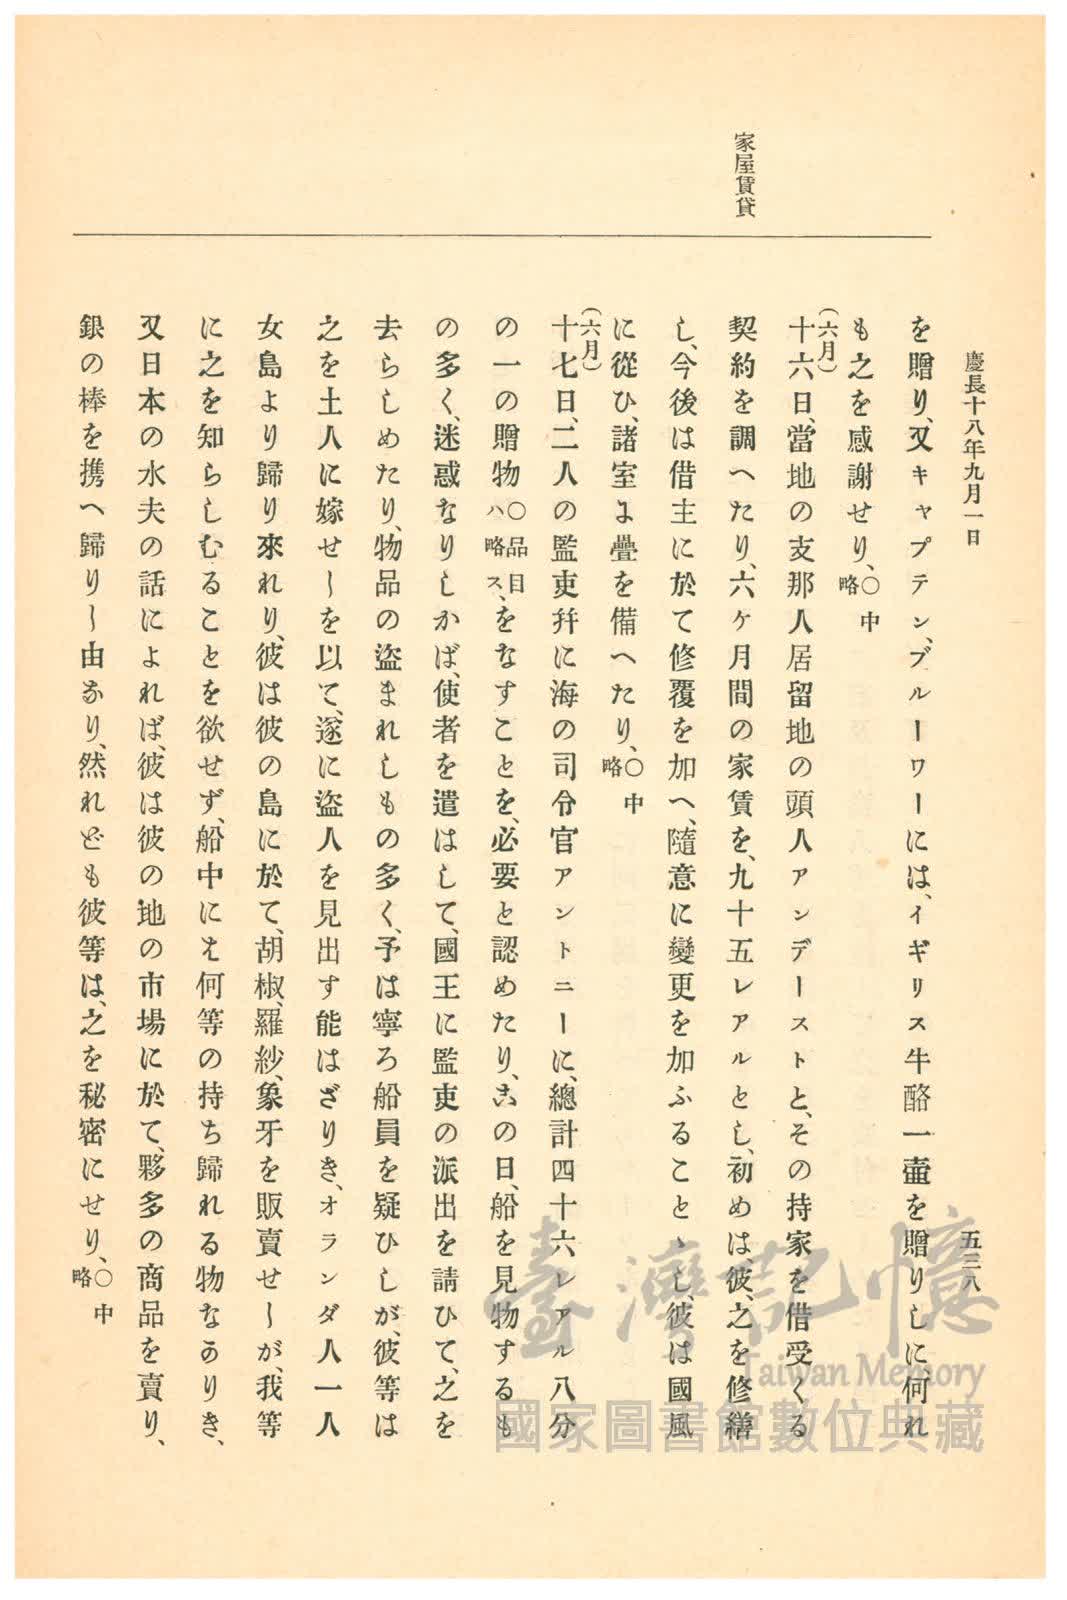 慶長十八年九月一日
五三八
家屋賃貸
を贈り、又キャプテン、ブルーワーには、イギリス牛酪一壷を贈りしに何れ
も之を感謝せり、〇中略
(六月)
十六日、當地の支那人居留地の頭人アンデーストと、その持家を借受くる
契約を調へたり、六ケ月間の家賃を、九十五レアルとし、初めは、彼、之を修繕
し、今後は借主に於て修覆を加へ、隨意に變更を加ふることゝし、彼は國風
に從ひ、諸室よ疊を備へたり、〇中略
(六月)
十七日、二人の監吏幷に海の司令官アントニーに、總計四十六レアル八分
の一の贈物〇品目ハ略ス、をなすことを、必要と認めたり、この日、船を見物するも
の多く、迷惑なりしかば、使者を遣はして、國王に監吏の派出を請ひて、之を
去らしめたり、物品の盜まれしもの多く、予は寧ろ船員を疑ひしが、彼等は
之を土人に嫁せしを以て、遂に盜人を見出す能はざりき、オランダ人一人
女島より歸り來れり、彼は彼の島に於て、胡椒、羅紗、象牙を販賣せしが、我等
に之を知らしむることを欲せず、船中にえ何等の持ち歸れる物なかりき、
又日本の水夫の話によれば、彼は彼の地の市場に於て、夥多の商品を賣り、
銀の棒を携へ歸りし由なり、然れども彼等は、之を秘密にせり、〇中略
臺灣記憶
Taiwan Memory
國家圖書館數位典藏